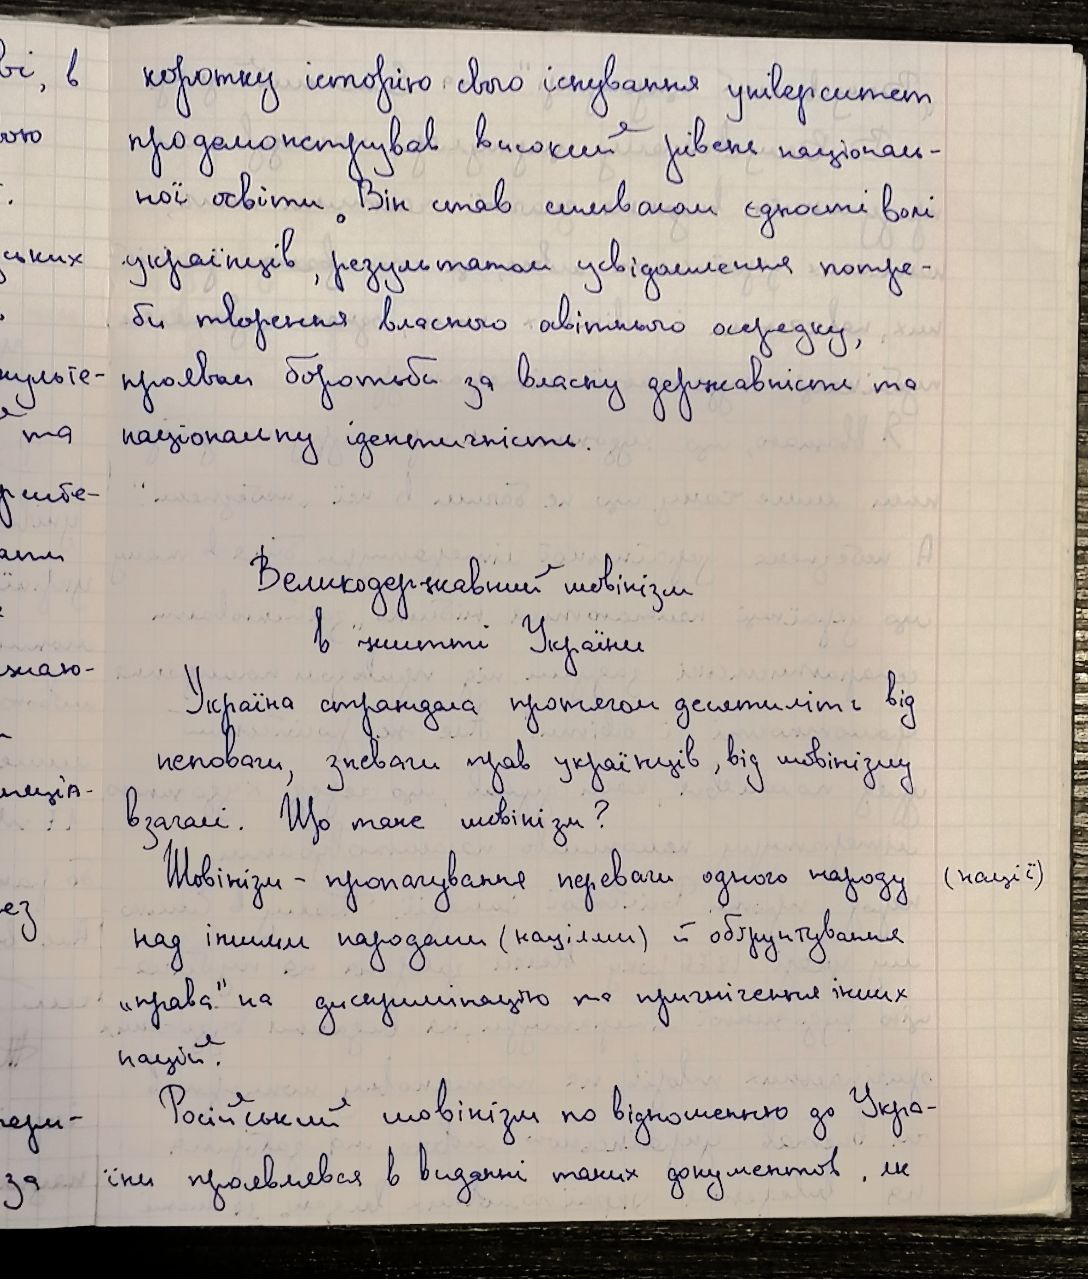 ві, в
ською
ультe-
та
за
коротку історію свого існування університет
продемонстрував високий рівень національ-
ної освіти. Він став символом єдності волі
українців, результатом усвідомлення потре-
би творення власного освітнього осередку,
проявом боротьби за власну державність та
національну ідентичність.
Великодержавний шовінізм
в житті України
Україна страждала протягом десятиліть від
неповаги, зневаги прав українців, від шовінізму
взагалі. Що таке шовінізм?
Шовінізм - пропагування переваги одного народу (нації)
над іншими народами (націями) й обґрунтування
„права" на дискримінацію та пригнічення інших
націй.
Російський шовінізм по відношенню до Укра-
їни проявлявся в виданні таких документов, як